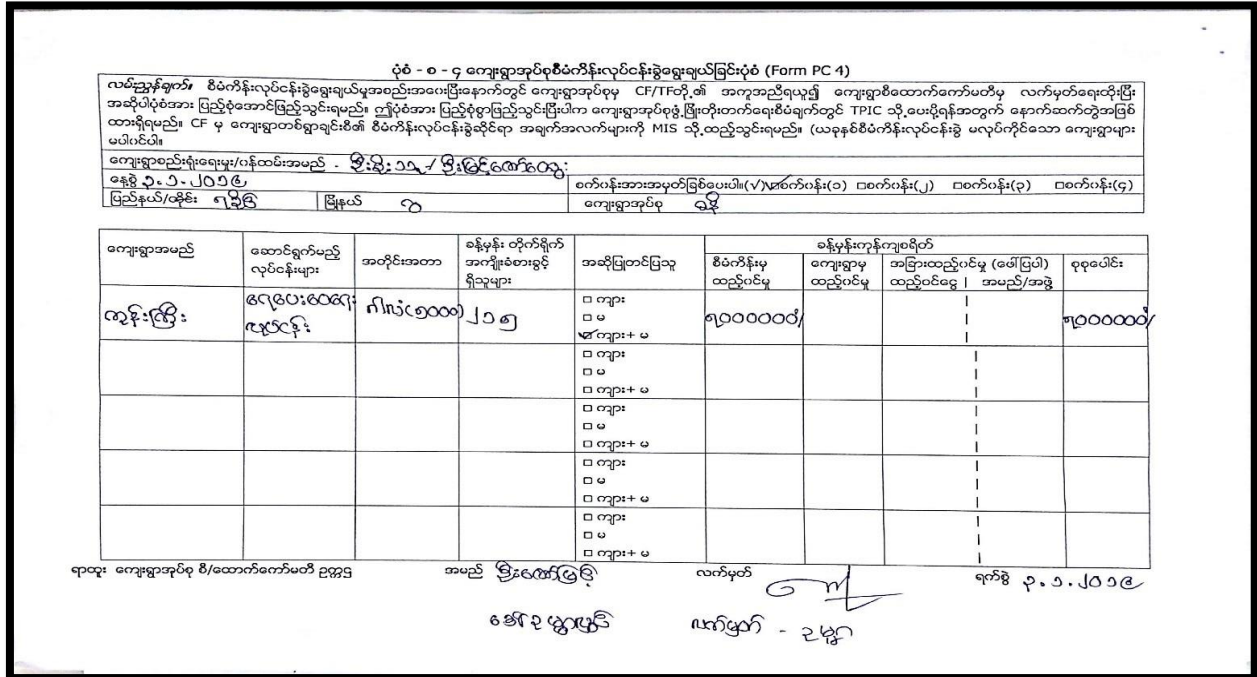 ပုံစံ - ၈ - ၄ ကျေးရွာအုပ်စုစီမံကိန်းလုပ်ငန်းခွဲရွေးချယ်ခြင်းပုံစံ (Form PC 4)
လမ်းညွှန်ချက်။ စီမံကိန်းလုပ်ငန်းခွဲရွေးချယ်မှုအစည်းအဝေးပြီးနောက်တွင် ကျေးရွာအုပ်စုမှ CF/TFတို့၏ အကူအညီရယူ၍ ကျေးရွာစီထောက်ကော်မတီမှ လက်မှတ်ရေးထိုးပြီး
အဆိုပါပုံစံအား ပြည့်စုံအောင်ဖြည့်သွင်းရမည်။ ဤပုံစံအား ပြည့်စုံစွာဖြည့်သွင်းပြီးပါက ကျေးရွာအုပ်စုဖွံ့ဖြိုးတိုးတက်ရေးစီမံချက်တွင် TPIC သို့ပေးပို့ရန်အတွက် နောက်ဆက်တွဲအဖြစ်
ထားရှိရမည်။ CF မှ ကျေးရွာတစ်ရွာချင်းစီ၏ စီမံကိန်းလုပ်ငန်းခွဲဆိုင်ရာ အချက်အလက်များကို MIS သို့ထည့်သွင်းရမည်။ (ယခုနှစ်စီမံကိန်းလုပ်ငန်းခွဲ မလုပ်ကိုင်သော ကျေးရွာများ
မပါဝင်ပါ။
ကျေးရွာစည်းရုံးရေးမှူး/ဝန်ထမ်းအမည် -
နေ့စွဲ ၃.၁.၂၀၁၉ စက်ဝန်းအားအမှတ်ခြစ်ပေးပါ။(√) စက်ဝန်း(၁) □စက်ဝန်း(၂) □စက်ဝန်း(၃) □စက်ဝန်း(၄)
ပြည်နယ်/တိုင်း ရခိုင် မြို့နယ် ဂွ ကျေးရွာအုပ်စု
ကျေးရွာအမည် ဆောင်ရွက်မည့် လုပ်ငန်းများ အတိုင်းအတာ ခန့်မှန်း တိုက်ရိုက် အကျိုးခံစားခွင့် ရှိသူများ အဆိုပြုတင်ပြသူ ခန့်မှန်းကုန်ကျစရိတ်
စီမံကိန်းမှ ထည့်ဝင်မှု ကျေးရွာမှ ထည့်ဝင်မှု အခြားထည့်ဝင်မှု (ဖေါ်ပြပါ) ထည့်ဝင်ငွေ | အမည်/အဖွဲ့ စုစုပေါင်း
ကွန်းကြီး ရေပေးဝေရေး လုပ်ငန်း ဂါလံ(၅၀၀၀) ၂၁၅ □ ကျား
□ မ
☑ ကျား+ မ ရ၀၀၀၀၀၀ိ/ ရ၀၀၀၀၀၀ိ/
□ ကျား
□ မ
□ ကျား+ မ
□ ကျား
□ မ
□ ကျား+ မ
□ ကျား
□ မ
□ ကျား+ မ
□ ကျား
□ မ
□ ကျား+ မ
ရာထူး ကျေးရွာအုပ်စု စီ/ထောက်ကော်မတီ ဥက္ကဋ္ဌ အမည် လက်မှတ် ရက်စွဲ ၃.၁.၂၀၁၉
လက်မှတ် -